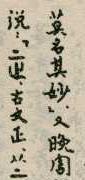 莫名其妙」又晚周
说：「二𨑨，古文正，从二